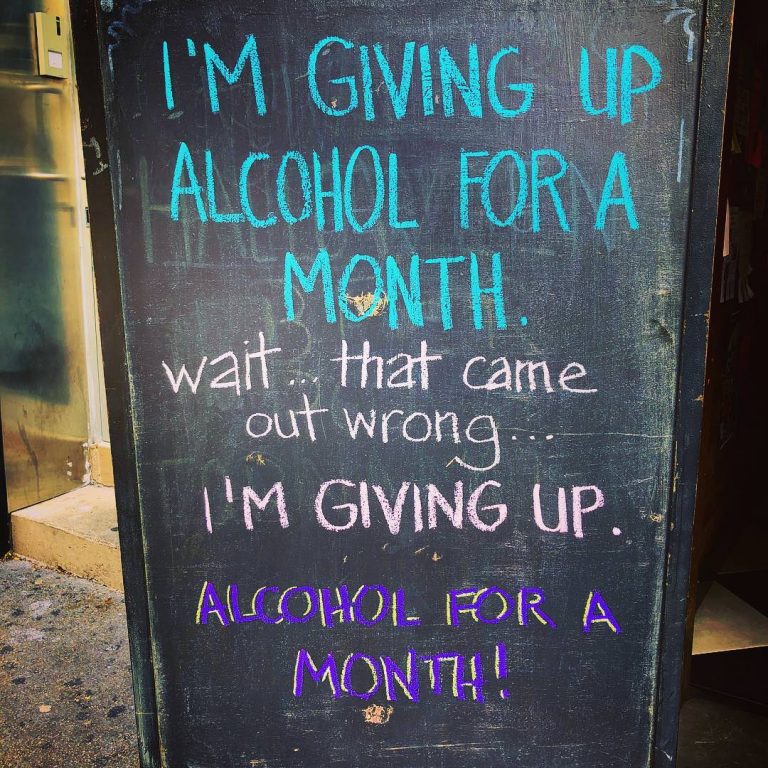 I'M GIVING UP
ALCOHOL FOR A
MONTH.
wait... that came
out wrong...
I'M GIVING UP.
ALCOHOL FOR A
MONTH!